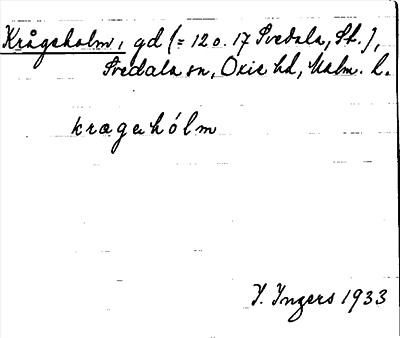 Krågsholm, gd (= 12 o. 17 Svedala, St.),
Svedala sn, Oxie hd, Malm. l.
krægahólm
I. Ingers 1933